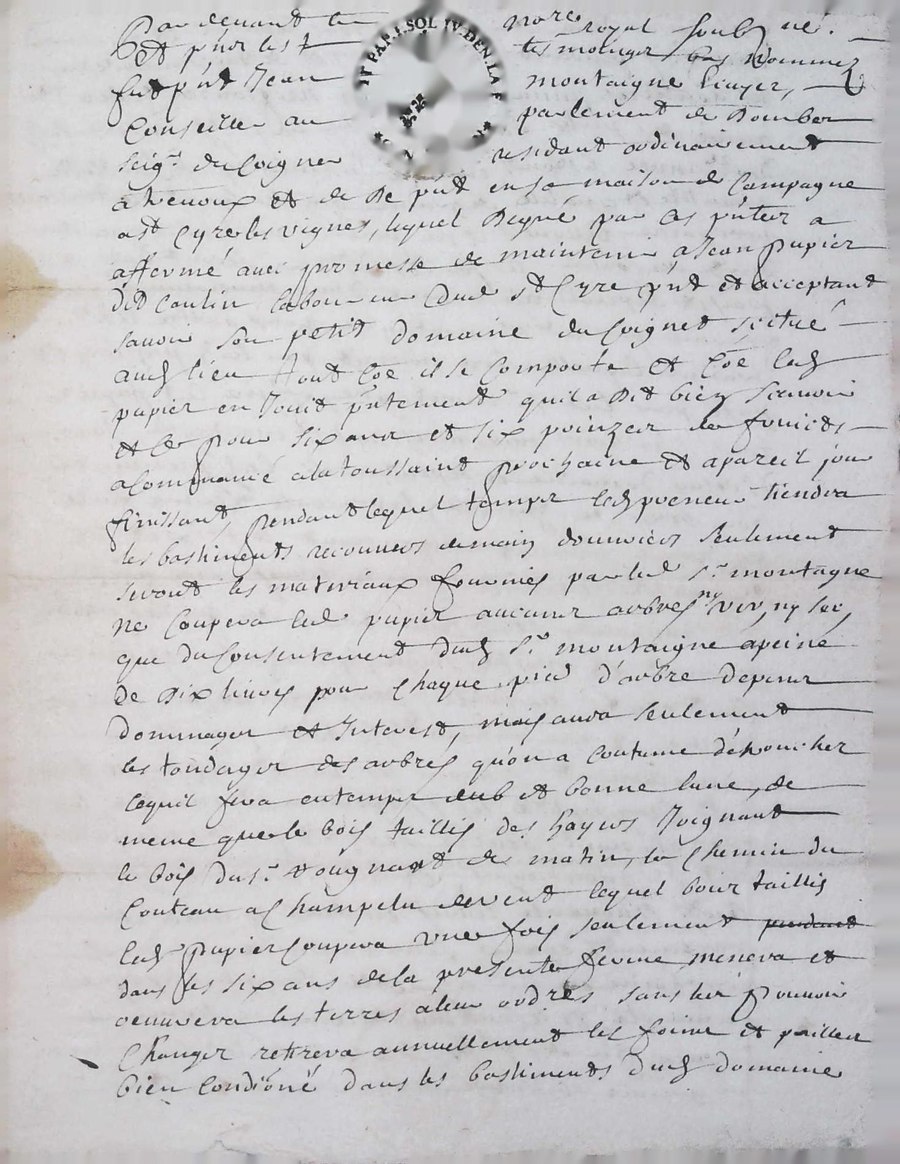 IT PAP. I. SOL IV. DEN. LA F
Par devant le nore royal soubsné.
et pnt les tesmoings bas nommez
fut pnt Jean montaigne Ecuyer,
Conseiller au parlement de Dombes
seigr. du Coignet residant ordinairement
a trevoux et de De pnt en sa maison de Campagne
a st Cyre les vignes, lequel Degré par Ces pntes a
affermé avec promesse de maintenir a Jean papier
dit Coulin laboureur dud st Cyre pnt et acceptant
savoir son petit domaine du Coignet scitué
aud lieu tout Coe il se Comporte et Coe led
papier en Jouit pntement qu'il a Dit bien scavoir
et Ce pour six ans et six prinzes de fruicts
a Commancé a la toussaint prochaine et a pareil jour
finissant, pendant lequel temps led preneur tiendra
les bastiments recouvers de main d'ouvriers seulement
seront les materiaux fournies par led sr. montagne
ne Coupera led papier aucuns arbres ny vir, ny sec,
que du Consentement dud sr. montaigne a peine
de Dix livres pour Chaque pied d'arbre depens
dommages et Interest, mais aura seulement
les tondages des arbres qu'on a Coutume d'ehoucher
Ce quil fera en temps deub et bonne lune, de
meme que le bois taillis des hayes Joignant
le bois du sr. de matin, le Chemin du
Couteau a Champelu de vent lequel bois taillis
led papier Coupera une fois seulement pendant
dans les six ans de la presente ferme menera et
oeuvrera les terres a leur ordres sans les pouvoir
Changer retirera annuellement les foins et pailles
bien Condioné dans les bastiments dud domaine